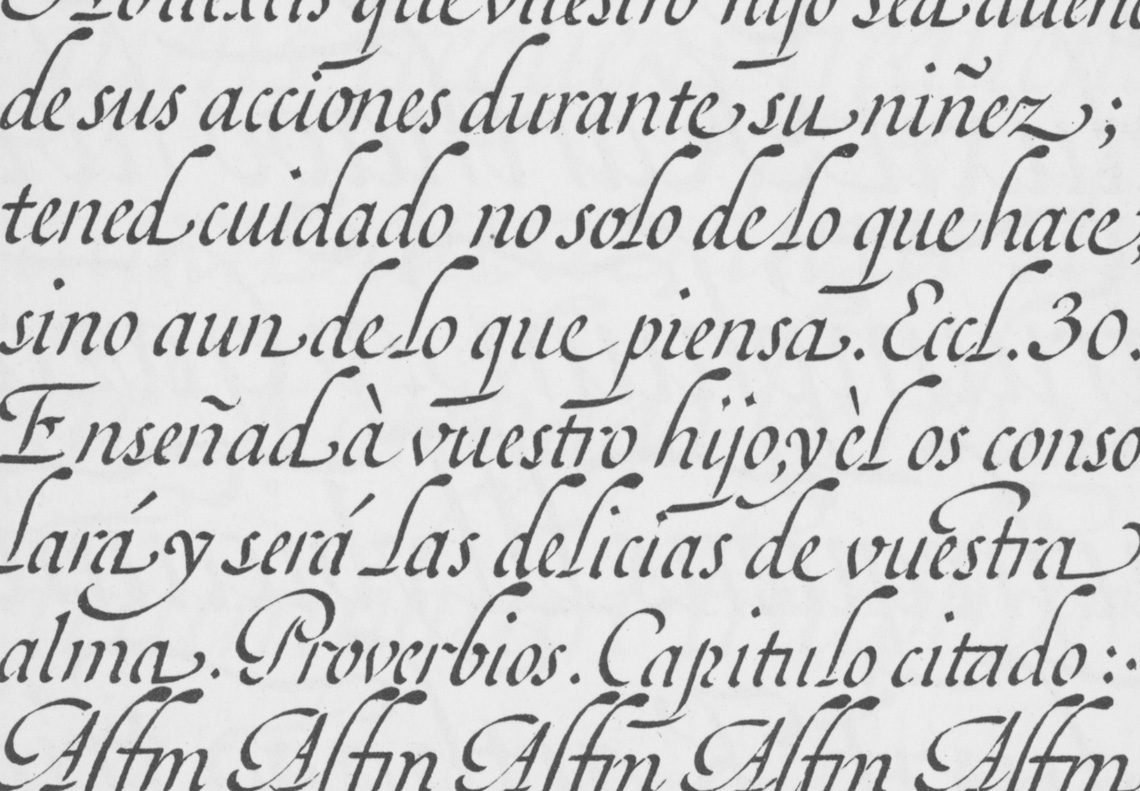 que vuestro hijo sea
de sus acciones durante su niñez;
tened cuidado no solo de lo que hace,
sino aun de lo que piensa. Eccl. 30.
Enseñad à vuestro hijo, y èl os conso
lará y será las delicias de vuestra
alma. Proverbios. Capitulo citado: